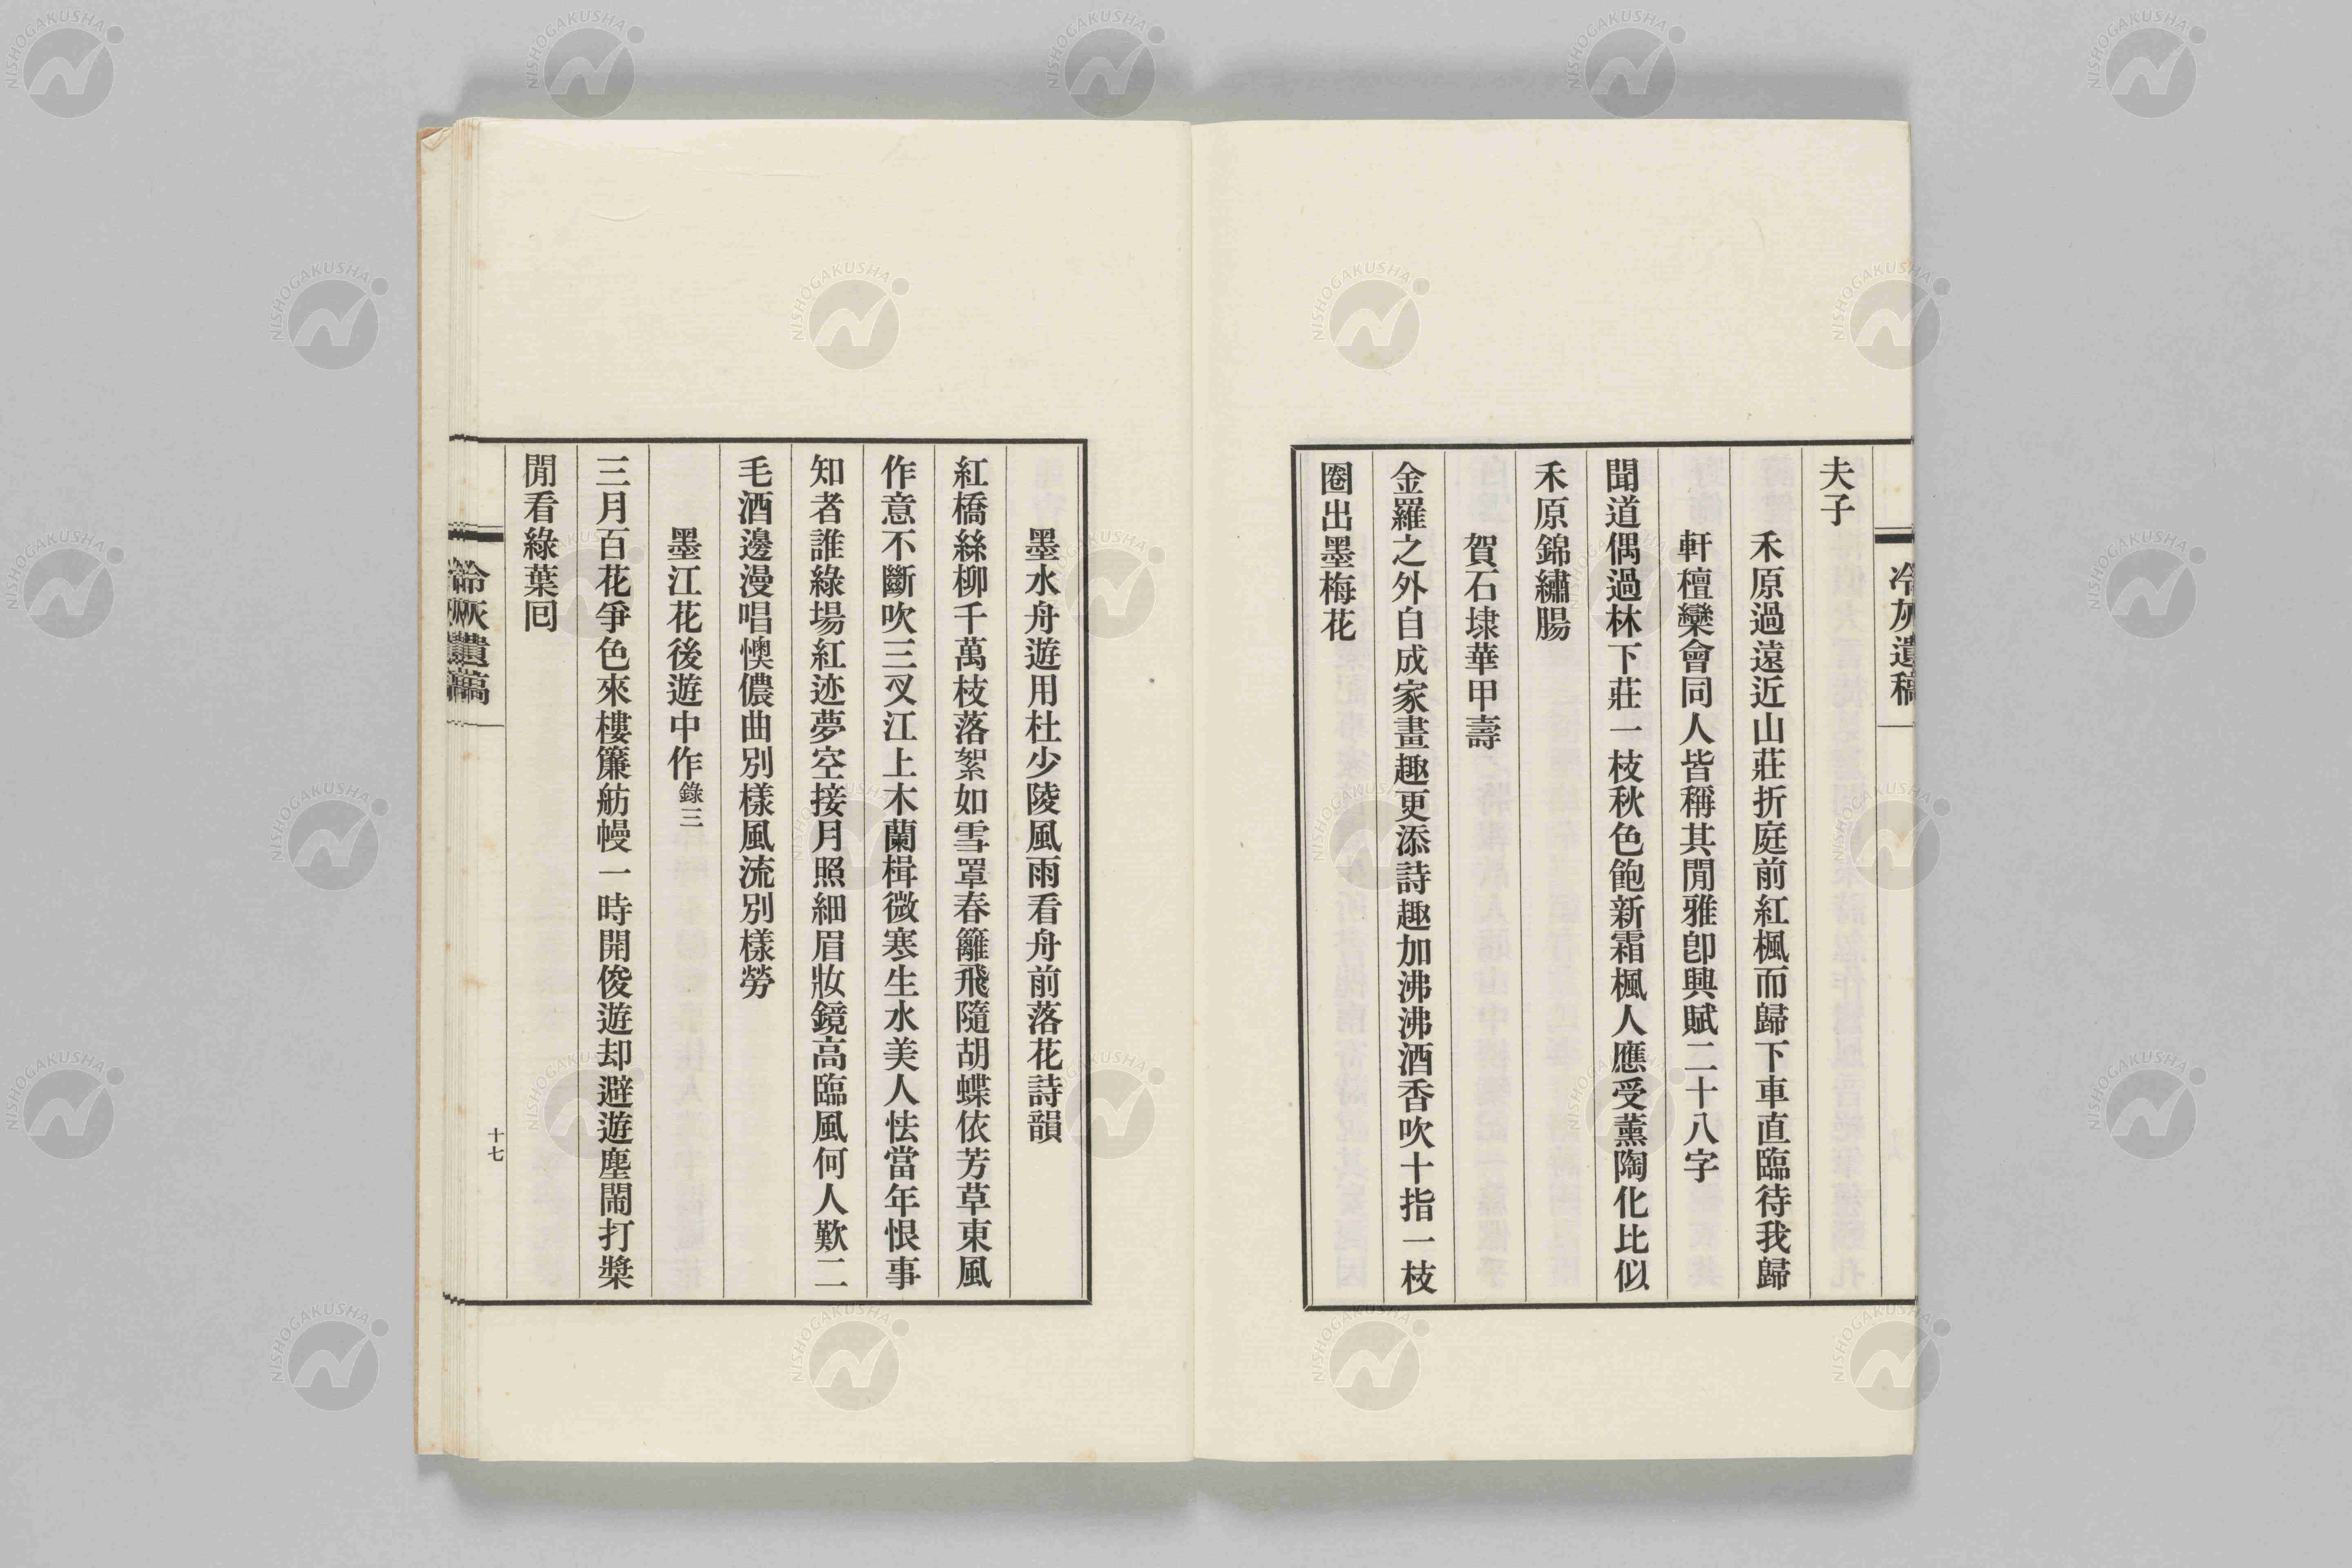 冷灰遺稿
夫子
禾原過遠近山莊折庭前紅楓而歸下車直臨待我歸
軒檀欒會同人皆稱其閒雅卽興賦二十八字
聞道偶過林下莊一枝秋色飽新霜楓人應受薰陶化比似
禾原錦繡腸
賀石埭華甲壽
金羅之外自成家畫趣更添詩趣加沸沸酒香吹十指一枝
圈出墨梅花
墨水舟遊用杜少陵風雨看舟前落花詩韻
紅橋絲柳千萬枝落絮如雪罩春籬飛隨胡蝶依芳草東風
作意不斷吹三叉江上木蘭楫微寒生水美人怯當年恨事
知者誰綠場紅迹夢空接月照細眉妝鏡高臨風何人歎二
毛酒邊漫唱懊儂曲別樣風流別樣勞
墨江花後遊中作錄三
三月百花爭色來樓簾舫幔一時開俊遊却避遊塵鬧打槳
閒看綠葉囘
冷灰遺稿
十七
NISHOGAKUSHA